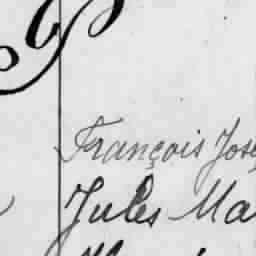 François Jose
Jules Ma